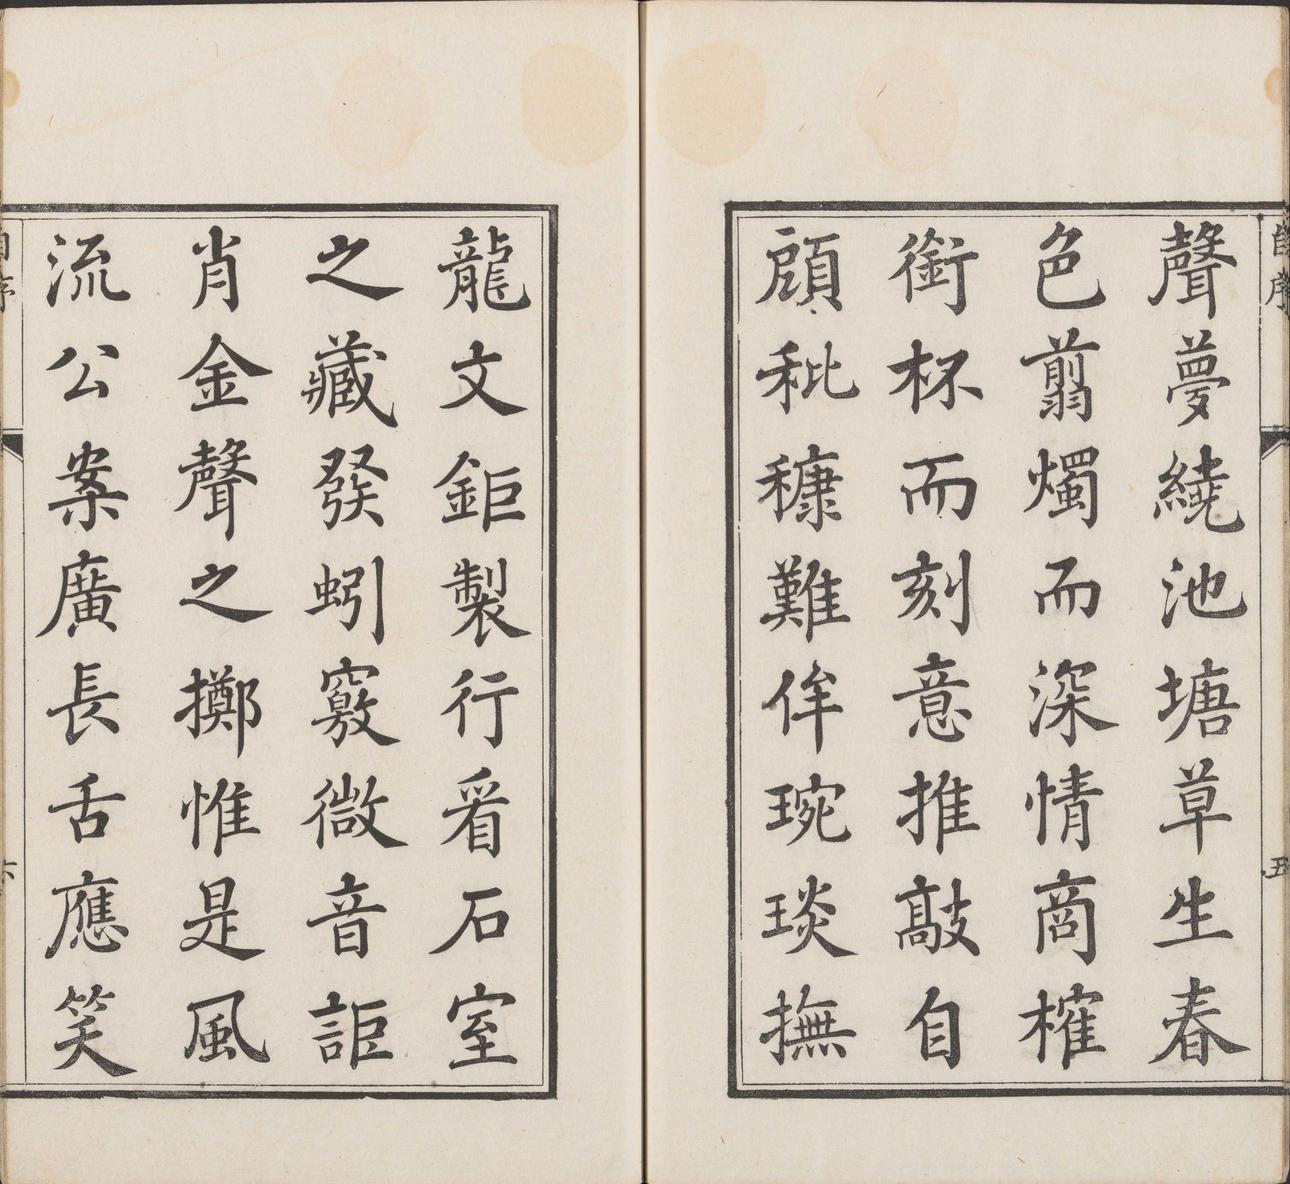 聲夢繞池塘草生春
色翦燭而深情商榷
銜杯而刻意推敲自
顧秕穅難侔琬琰撫
龍文鉅製行看石室
之藏發蚓竅微音詎
肖金聲之擲惟是風
流公案廣長舌應笑
自序
五
自序
六